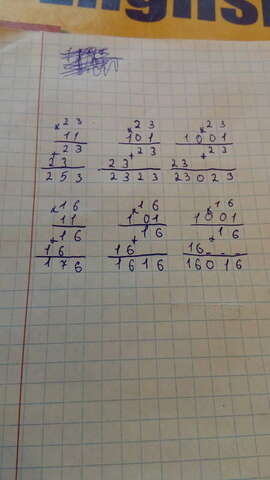 English
×23 ×23 ×23
11 101 1001
+23 +23 +23
23 23 23
253 2323 23023
×16 ×16 ×16
11 101 1001
+16 +16 +16
16 16 16
176 1616 16016